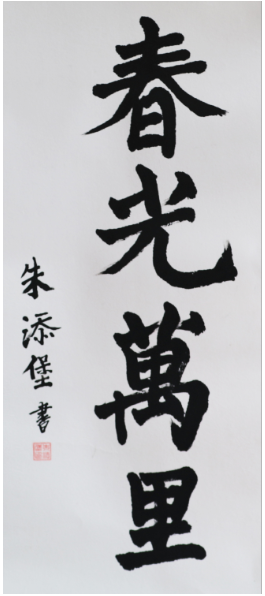 春光萬里
朱添堡書